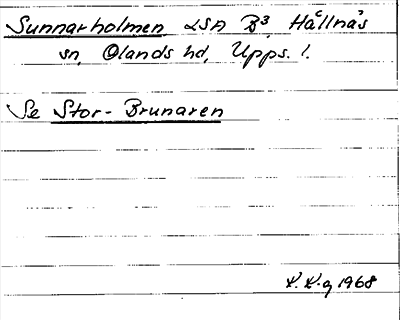 Sunnarholmen LSA B³ Hållnäs
sn, Olands hd, Upps. l.
Se Stor-Brunaren
K. K-g 1968